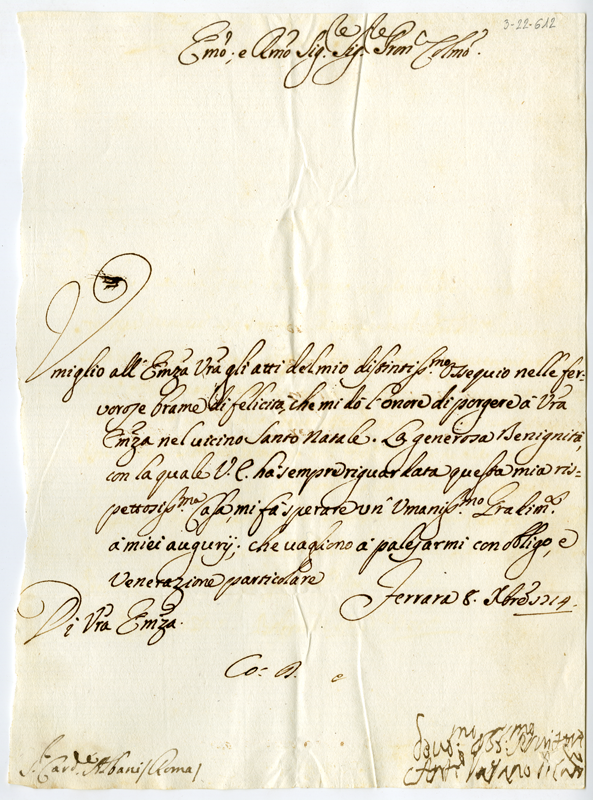 3-22-612
Emo, e Rmo Sig. Sig.re Pron.e Colmo.
Umiglio all'Emza Vra gli atti del mio distintiss.mo ossequio nelle fer-
vorose brame di felicità, che mi dò l'onore di porgere a Vra
Emza nel vicino Santo Natale. La generosa Benignità,
con la quale V. E. hà sempre riguardata questa mia ris-
pettosiss.ma Casa, mi fà sperare un' Umaniss.mo Gradim.to
à miei augurij; che vagliono à palesarmi con obligo, e
Venerazione particolare
Ferrara 8. Xbre 1714.
Di Vra Emza.
S.r Card.le Albani (Roma)